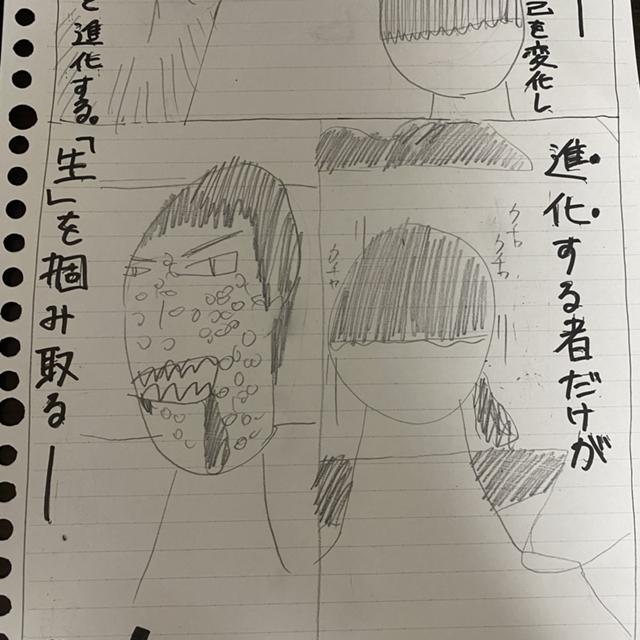 己を変化し
と進化する。
進化する者だけが
クチャ
クチャ
クチャ
「生」を掴み取る―